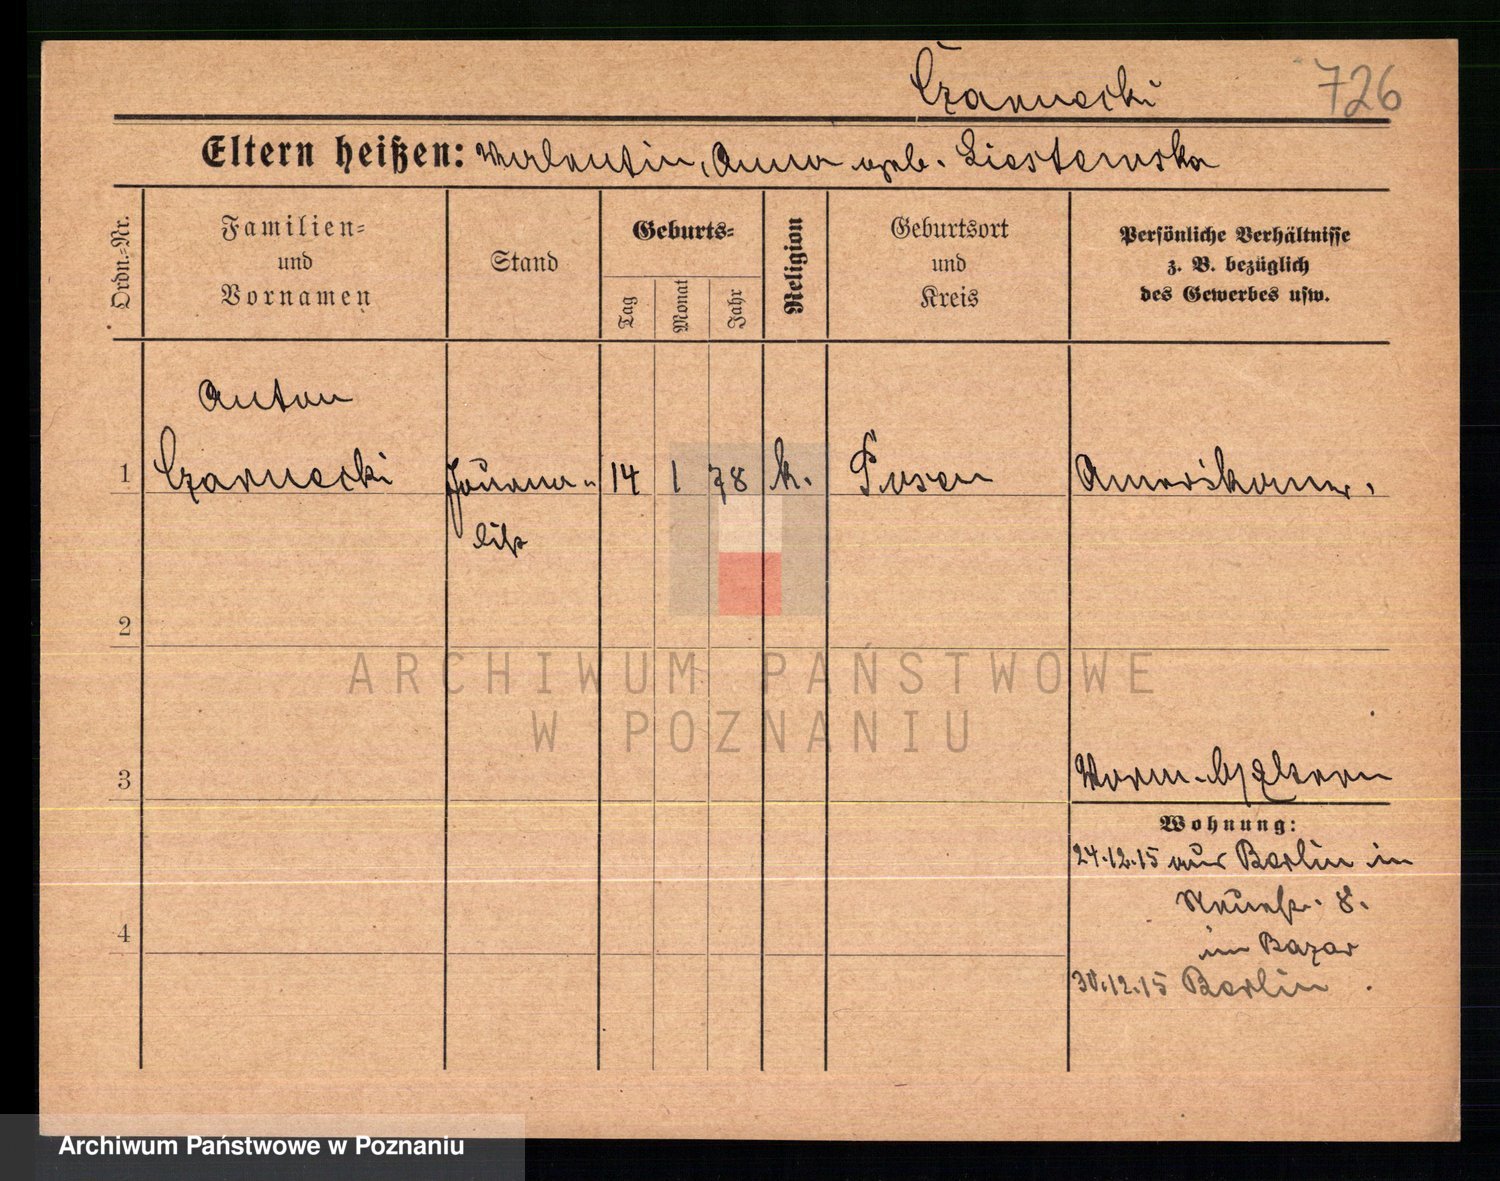 Czarnecki
726
Eltern heißen: Valentin, Anna geb. Liestewska
Ordn.-Nr.
Familien-
und
Vornamen
Stand
Geburts-
Tag
Monat
Jahr
Religion
Geburtsort
und
Kreis
Persönliche Verhältnisse
z. B. bezüglich
des Gewerbes usw.
Anton
1 Czarnecki Journa- 14 1 78 k. Posen Amerikaner.
list
2
ARCHIWUM PAŃSTWOWE
W POZNANIU
3
Wohnung:
24.12.15 aus Berlin in
Neuestr. 8.
4
im Bazar
30.12.15 Berlin
Archiwum Państwowe w Poznaniu